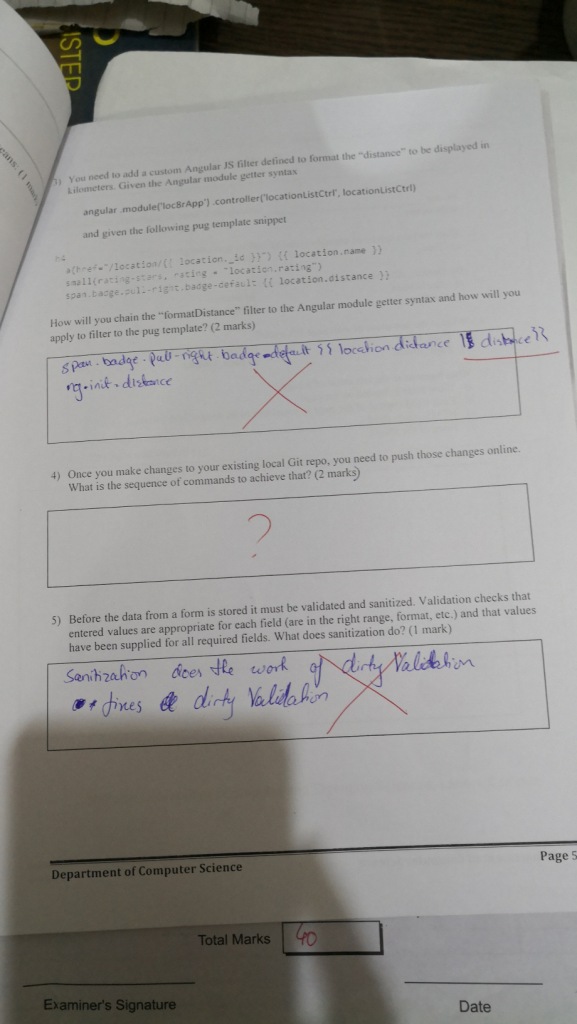 ISTER
3) You need to add a custom Angular JS filter defined to format the "distance" to be displayed in
kilometers. Given the Angular module getter syntax
angular .module('loc8rApp') .controller('locationListCtrl', locationListCtrl)
and given the following pug template snippet
h4
a(href="/location/{{ location._id }}") {{ location.name }}
small(rating-stars, rating = "location.rating")
span.badge.pull-right.badge-default {{ location.distance }}
How will you chain the "formatDistance" filter to the Angular module getter syntax and how will you
apply to filter to the pug template? (2 marks)
span.badge.pull-right.badge-default {{ location distance | distance}}
ng-init. distance
4) Once you make changes to your existing local Git repo, you need to push those changes online.
What is the sequence of commands to achieve that? (2 marks)
?
5) Before the data from a form is stored it must be validated and sanitized. Validation checks that
entered values are appropriate for each field (are in the right range, format, etc.) and that values
have been supplied for all required fields. What does sanitization do? (1 mark)
Sanitization does the work of dirty Validation
fixes dirty Validation
Department of Computer Science
Page 5
Total Marks 40
Examiner's Signature
Date